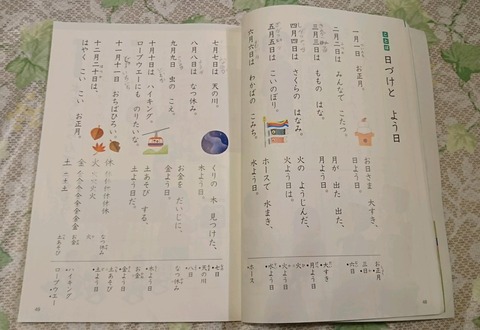 ことば
日づけと　よう日
一月一日　お正月。
二月二日は　みんなで　こたつ。
三月三日は　ももの　はな。
四月四日は　さくらの　はなみ。
五月五日は　こいのぼり。
六月六日は　わかばの　こみち。
お日さま　大すき、
日よう日。
月が　出た　出た、
月よう日。
火の　ようじんだ、
火よう日。
ホースで　水まき、
水よう日。
お正月
三日
六日
大すき
月よう日
火
火よう日
水よう日
ホース
七月七日は　天の川。
八月八日は　なつ休み。
九月九日　虫の　こえ。
十月十日は　ハイキング、
ロープウエーにも　のりたいな。
十一月十一日　おちばひろい。
十二月二十日は、
はやく　こい　こい　お正月。
くりの　木　見つけた、
木よう日。
お金を　だいじに、
金よう日。
土あそび　する、
土よう日だ。
休
火
金
土
なつ休み
火
お金
土あそび
七日
天の川
八日
なつ休み
木よう日
お金
金よう日
土あそび
土よう日
ハイキング
ロープウエー